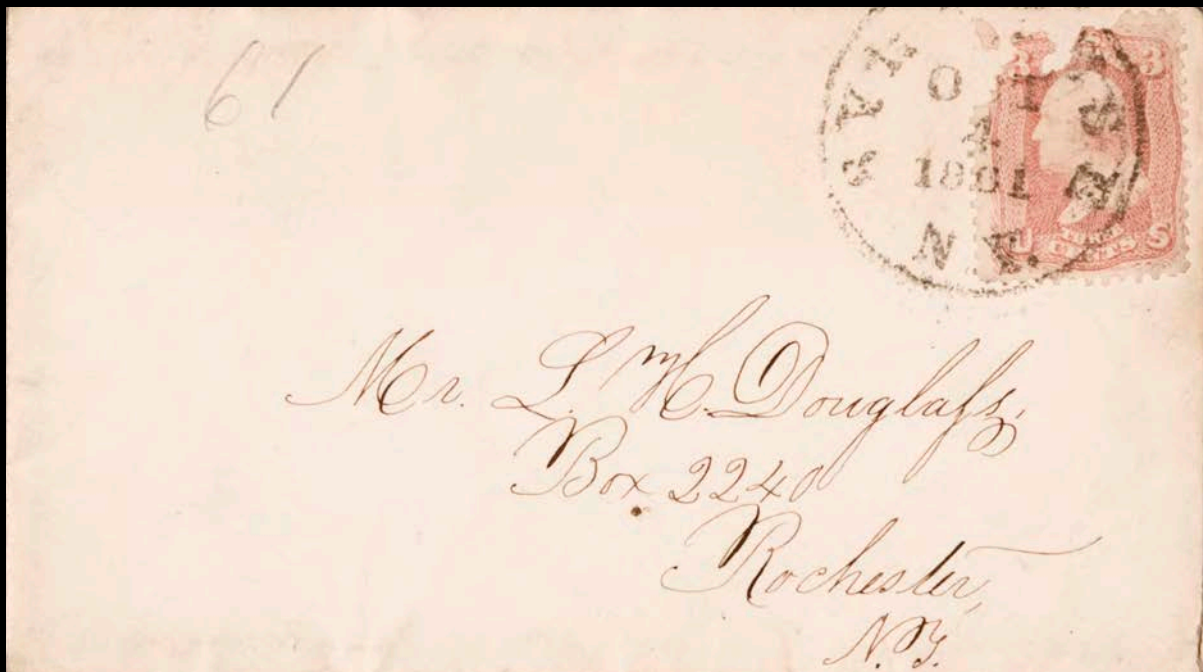 61
4
1861
N.Y.
3 3
U S
CENTS
Mr. L. H. Douglaſs,
Box 2240
Rochester,
N.Y.